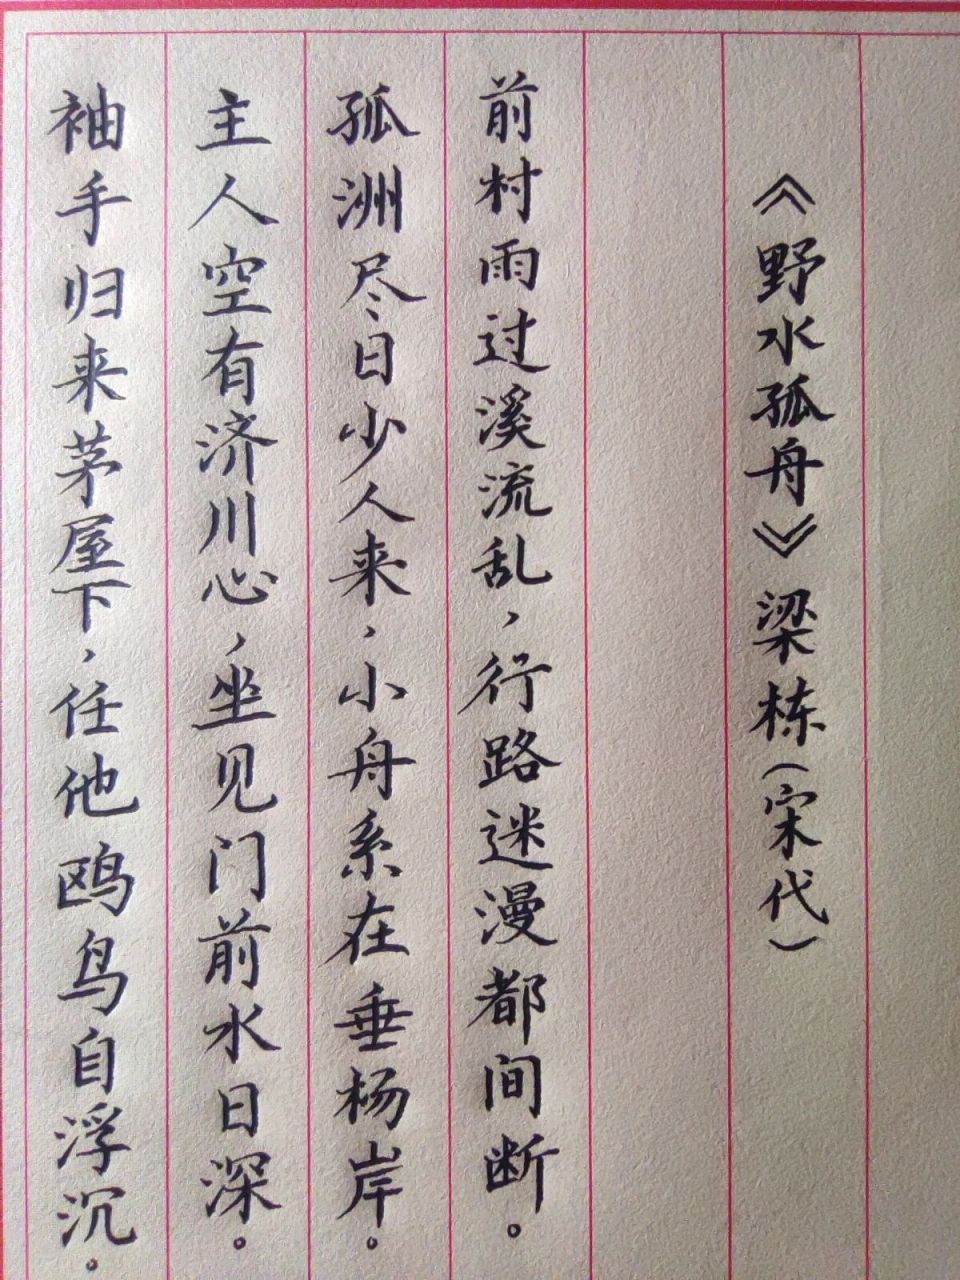 《野水孤舟》梁栋(宋代)
前村雨过溪流乱，行路迷漫都间断。
孤洲尽日少人来，小舟系在垂杨岸。
主人空有济川心，坐见门前水日深。
袖手归来茅屋下，任他鸥鸟自浮沉。